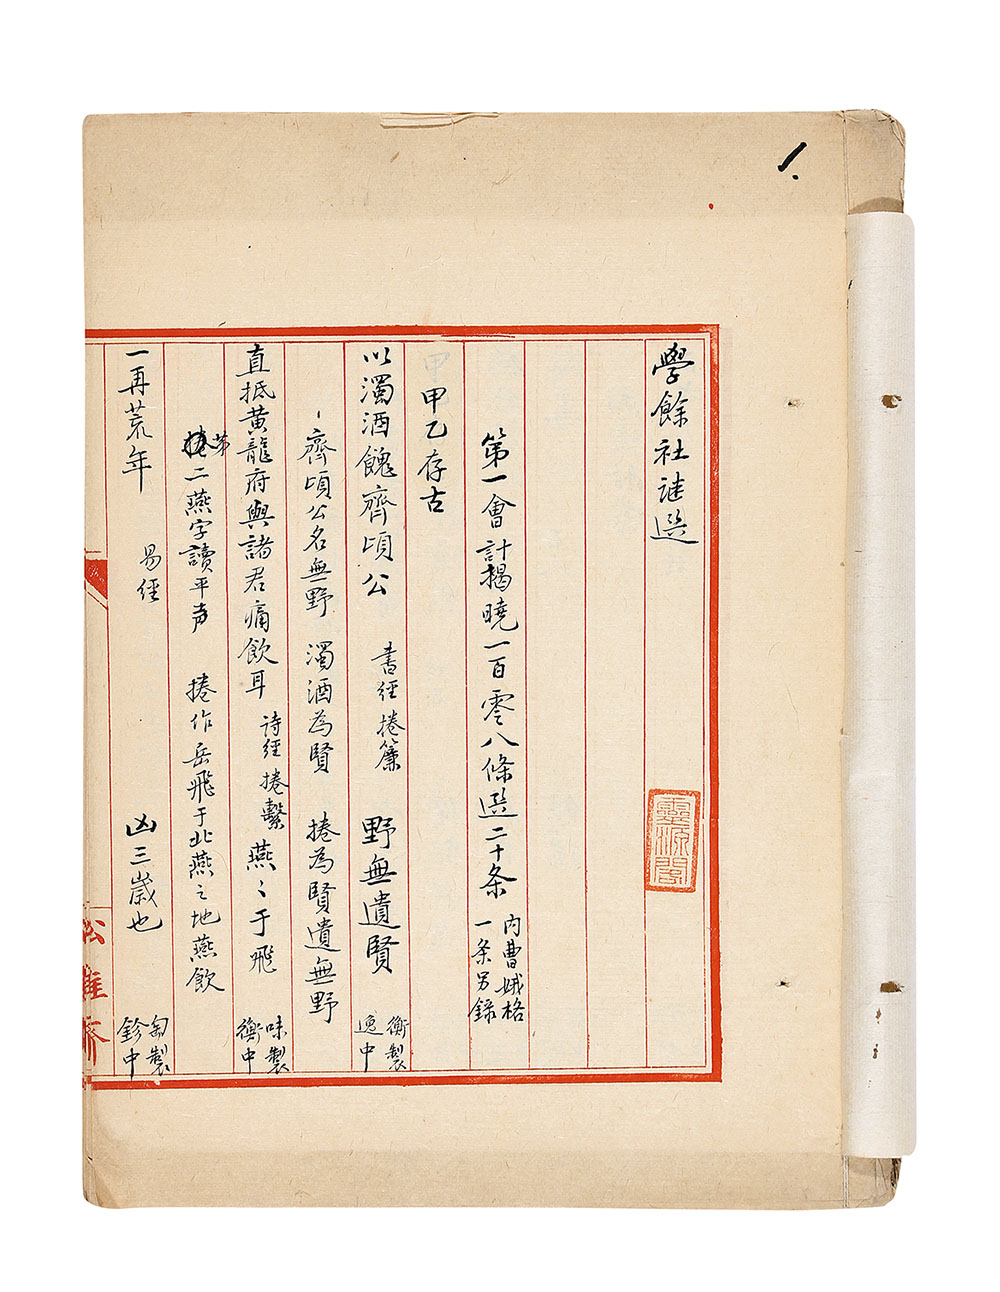 1.
學餘社謎選
靈源閣
第一會計揭曉一百零八條選二十条
內曹娥格
一条另錄
甲乙存古
以濁酒餽齊頃公 書經捲簾 野無遺賢
衡製
逸中
齊頃公名無野 濁酒為賢 捲為賢遺無野
直抵黃龍府與諸君痛飲耳 诗經捲繫 燕〻于飛
味製
衡中
第二燕字讀平声 捲作岳飛于北燕之地燕飲
一再荒年 易經 凶三歲也
匋製
鉁中
松雅齋